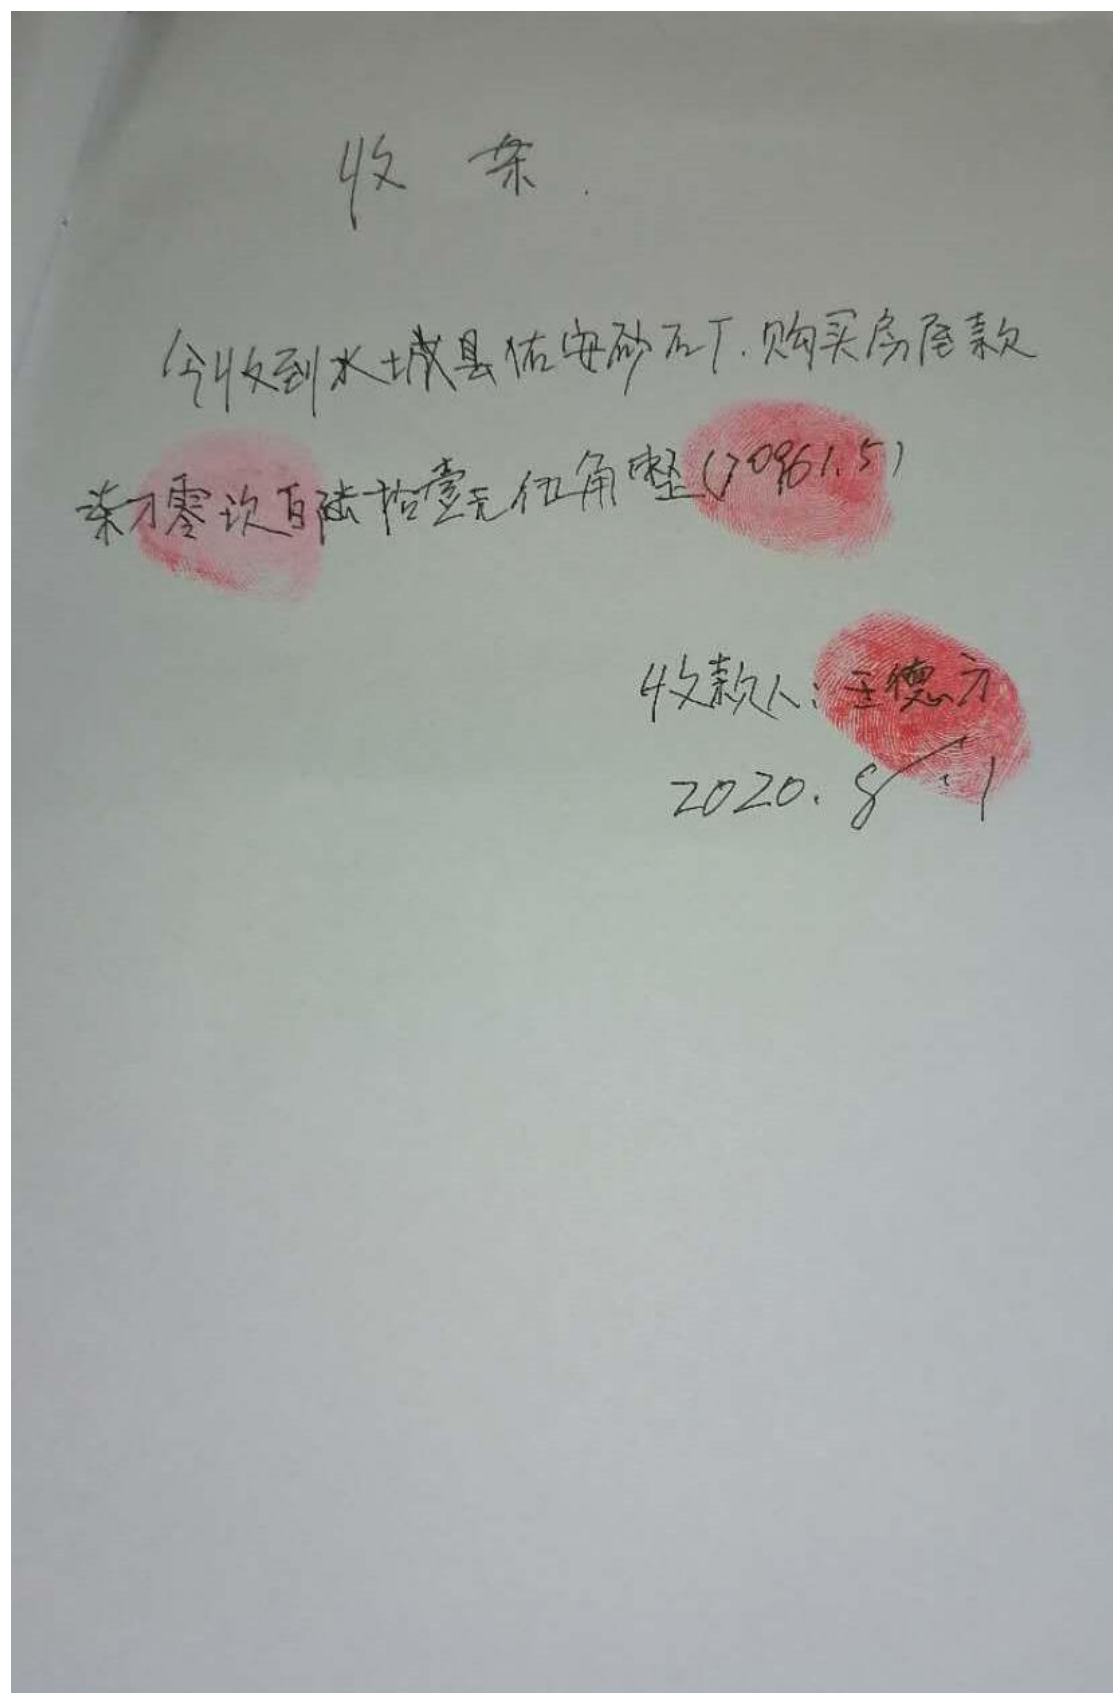 收 条.
今收到水城县佑安砂石厂.购买房屋款
柒万零玖百陆拾壹元伍角整(70961.5)
收款人:王德方
2020.8.1